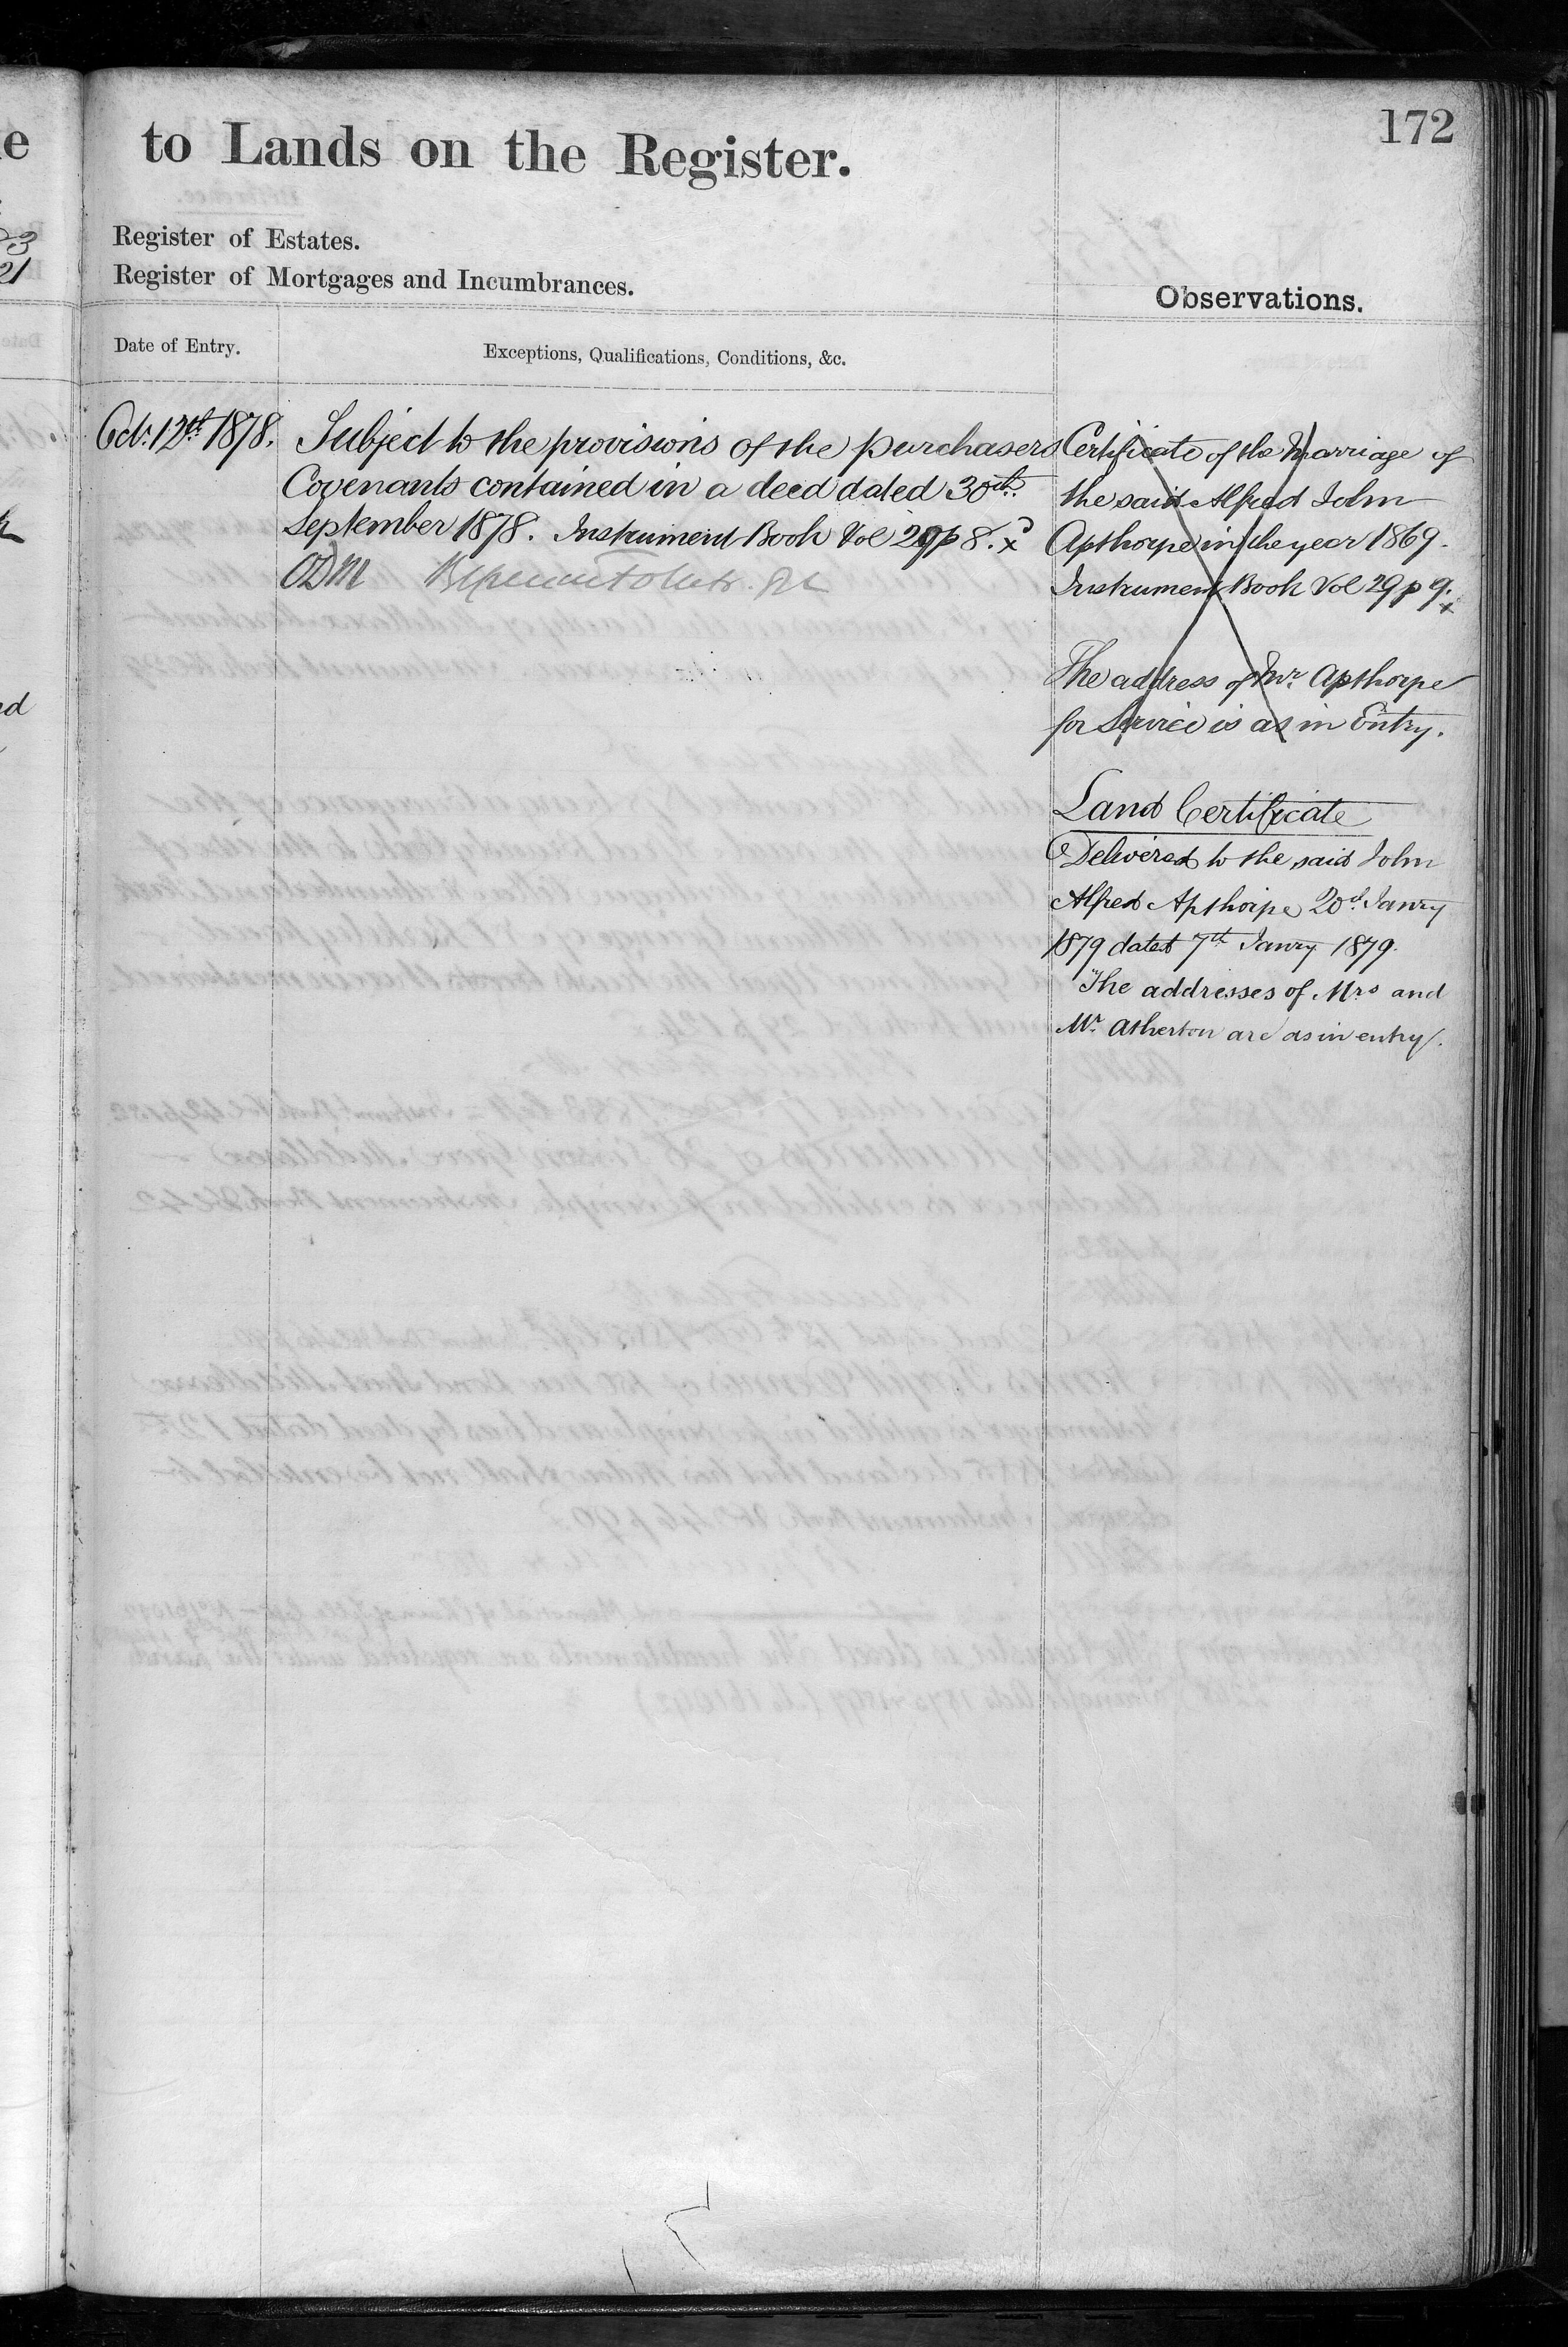 172
to Lands on the Register.
Register of Estates.
Register of Mortgages and Incumbrances.
Observations.
Date of Entry.
Exceptions, Qualifications, Conditions, &c.
Oct. 12th 1878.
Subject to the provisions of the purchasers
Covenants contained in a deed dated 30th
September 1878. Instrument Book Vol 29 p 8. x
ODM
Certificate of the Marriage of
the said Alfred John
Apthorpe in the year 1869.
Instrument Book Vol 29 p 9. x
The address of Mr. Apthorpe
for Service is as in Entry.
Land Certificate
Delivered to the said John
Alfred Apthorpe 20d. Janry
1879 dated 7th Janry 1879.
The addresses of Mrs and
Mr. Atherton are as in entry.